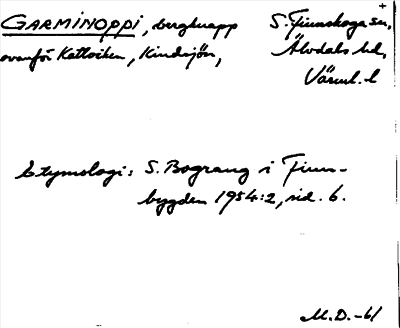 GARMINOPPI, bergknapp
ovanför Kattviken, Kindsjön,
S. Finnskoga sn,
Älvdals hd,
Värml. l
Etymologi: S. Bograng i Finn-
bygden 1954:2, sid. 6.
M.D. -61